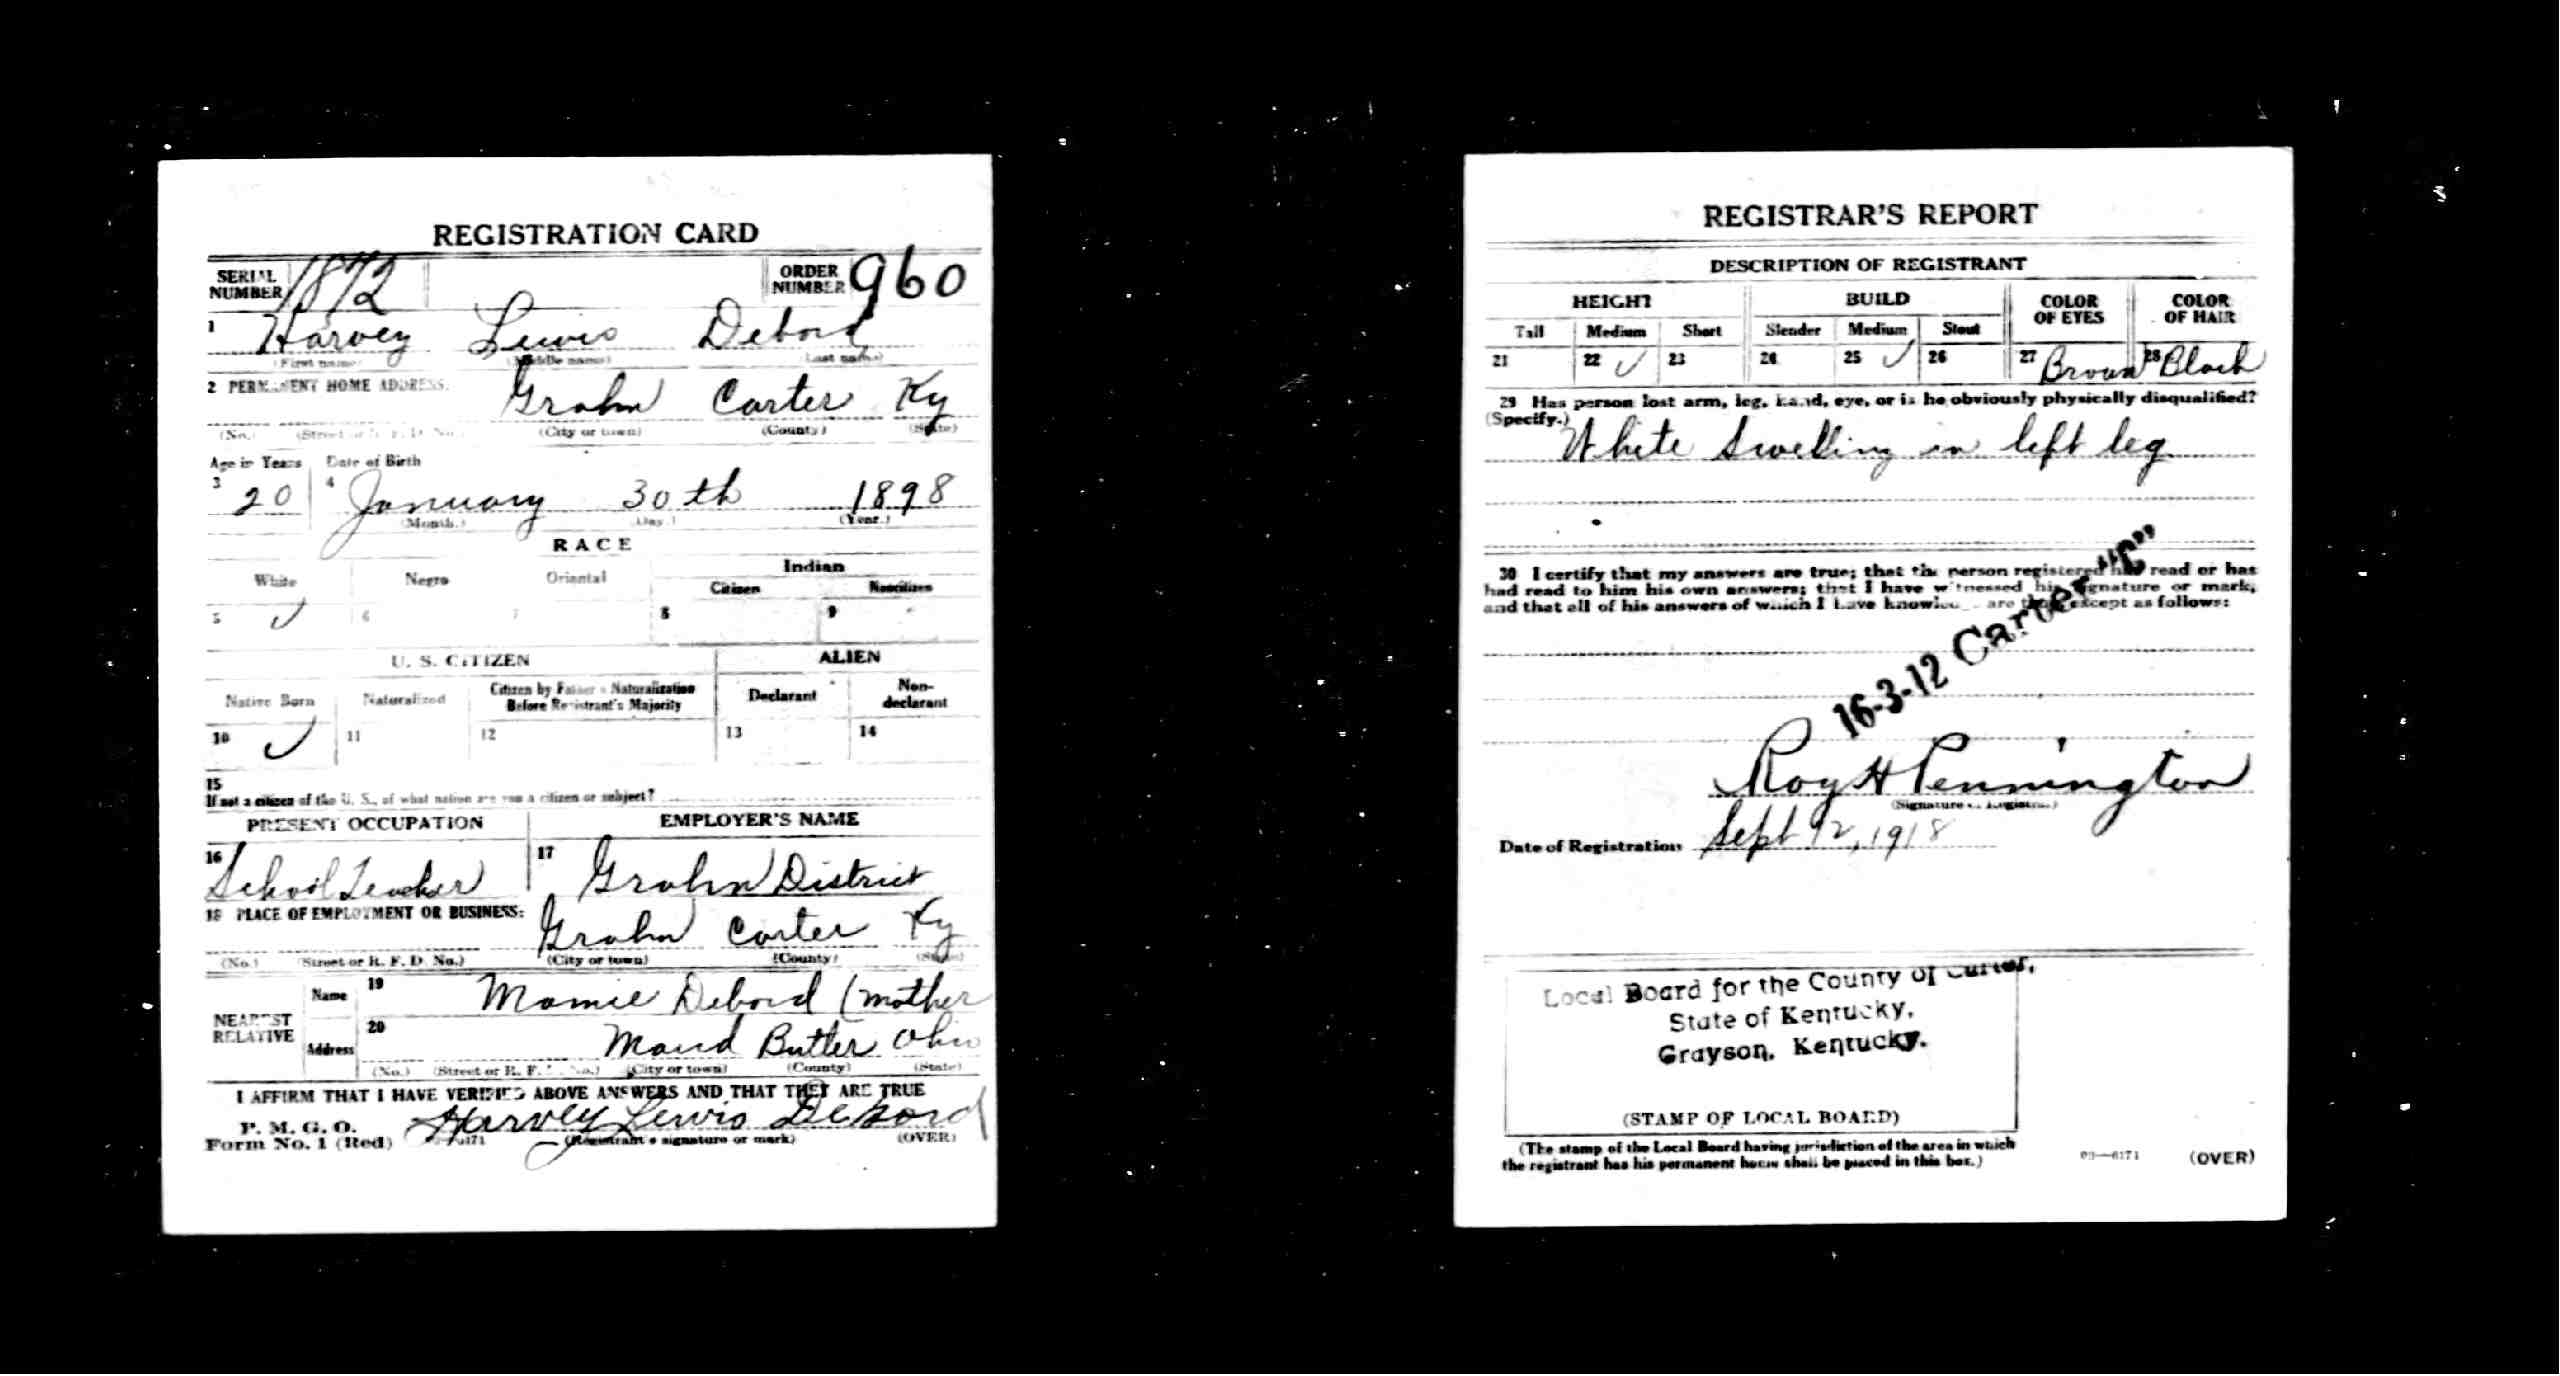 REGISTRATION CARD
SERIAL NUMBER 1872 ORDER NUMBER 960
1 Harvey Lewis Debord
(First name) (Middle name) (Last name)
2 PERMANENT HOME ADDRESS:
Grahn Carter Ky
(No.) (Street or R. F. D. No.) (City or town) (County) (State)
Age in Years Date of Birth
3 20 4 January 30th 1898
(Month.) (Day.) (Year.)
RACE
White Negro Oriental Indian
Citizen Noncitizen
5 ✓ 6 7 8 9
U. S. CITIZEN ALIEN
Native Born Naturalized Citizen by Father's Naturalization Before Registrant's Majority Declarant Non-declarant
10 ✓ 11 12 13 14
15
If not a citizen of the U. S., of what nation are you a citizen or subject?
PRESENT OCCUPATION EMPLOYER'S NAME
16 School Teacher 17 Grahn District
18 PLACE OF EMPLOYMENT OR BUSINESS:
Grahn Carter Ky
(No.) (Street or R. F. D. No.) (City or town) (County) (State)
NEAREST RELATIVE
Name 19 Mamie Debord (mother
Address 20 Maud Butler Ohio
(No.) (Street or R. F. D. No.) (City or town) (County) (State)
I AFFIRM THAT I HAVE VERIFIED ABOVE ANSWERS AND THAT THEY ARE TRUE
P. M. G. O.
Form No. 1 (Red) Harvey Lewis Debord
(Registrant's signature or mark) (OVER)
REGISTRAR'S REPORT
DESCRIPTION OF REGISTRANT
HEIGHT BUILD COLOR OF EYES COLOR OF HAIR
Tall Medium Short Slender Medium Stout
21 22 ✓ 23 24 25 ✓ 26 27 Brown 28 Black
29 Has person lost arm, leg, hand, eye, or is he obviously physically disqualified?
(Specify.)
White Swelling in left leg
30 I certify that my answers are true; that the person registered has read or has
had read to him his own answers; that I have witnessed his signature or mark,
and that all of his answers of which I have knowledge are true, except as follows:
16-3-12 Carter "C"
Roy H Pennington
(Signature of Registrar)
Date of Registration Sept 12, 1918
Local Board for the County of Carter,
State of Kentucky,
Grayson, Kentucky.
(STAMP OF LOCAL BOARD)
(The stamp of the Local Board having jurisdiction of the area in which
the registrant has his permanent home shall be placed in this box.)
(OVER)